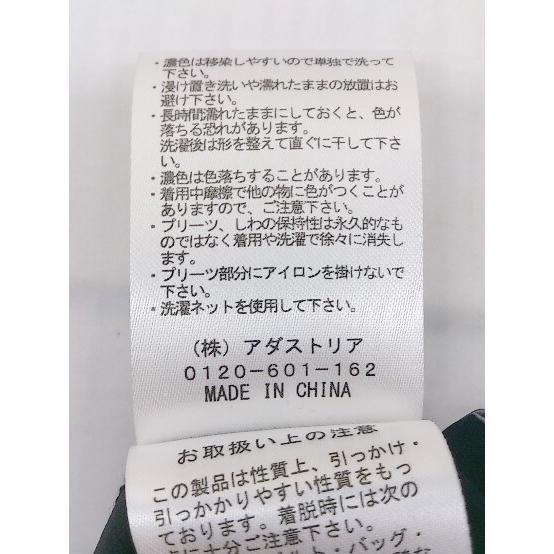 ・濃色は移染しやすいので単独で洗って
下さい。
・浸け置き洗いや濡れたままの放置はお
避け下さい。
・長時間濡れたままにしておくと、色が
落ちる恐れがあります。
洗濯後は形を整えて直ぐに干して下さ
い。
・濃色は色落ちすることがあります。
・着用中摩擦で他の物に色がつくことが
ありますので、ご注意下さい。
・プリーツ、しわの保持性は永久的なも
のではなく着用や洗濯で徐々に消失し
ます。
・プリーツ部分にアイロンを掛けないで
下さい。
・洗濯ネットを使用して下さい。
（株）アダストリア
0120-601-162
MADE IN CHINA
お取扱い上の注意
この製品は性質上、引っかけ・
引っかかりやすい性質をもっ
ております。着脱時には次の
点に十分ご注意下さい。
ルト・バッグ・